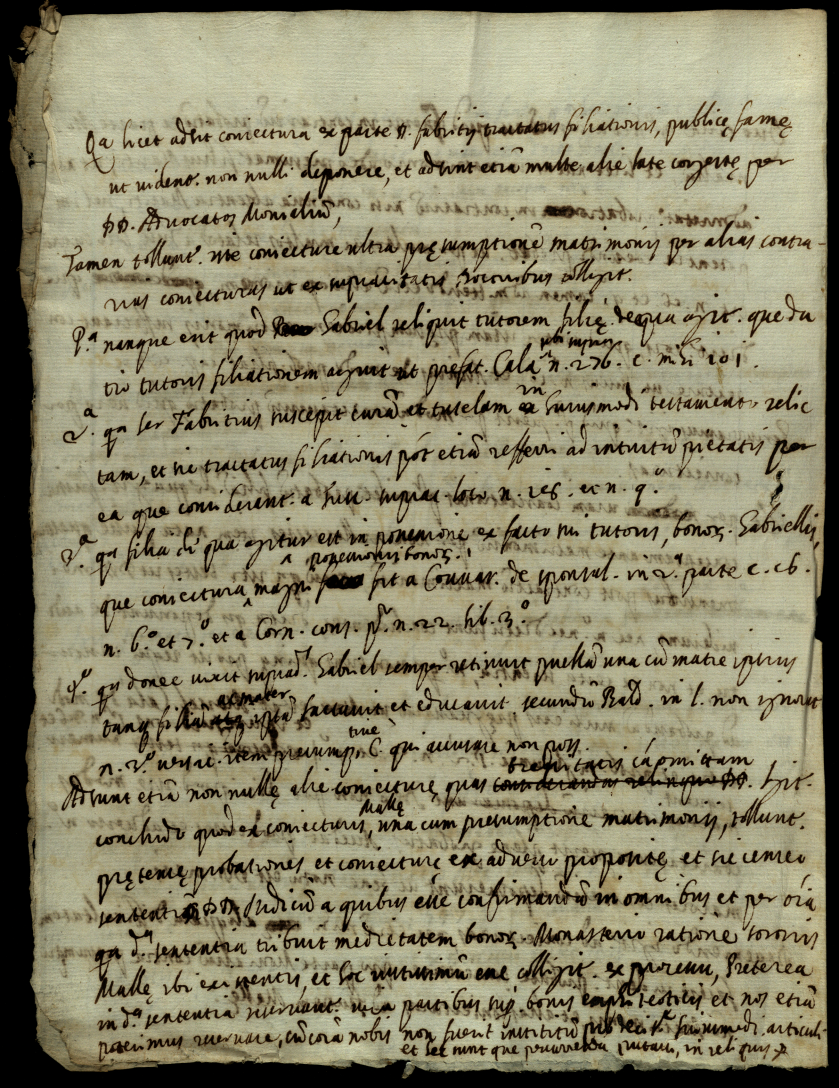 Qa licet adsit coniectura ex parte D. Fabritij tractatus filiationis, publicę famę
ut vident. non nulli deponere, et adsint etiā multe alie late congestę per
DD. Advocatos Monialiū,
Tamen tollunt. iste coniecture ultra pręsumptionē matrimonij per alias contra-
rias coniecturas ut ex infrascriptis rationibus colligit.
P.a nanque erit quod Gabriel reliquit tutorem filię de qua agit. que da
tio tutoris filiationem arguit ut prefat. Cala n. 276. c.
ubi supra
2.a qa ser Fabritius suscepit curā et tutelam in huiusmodi testamento relic
tam, et sic tractatus filiationis pōt etiā referri ad intuitū pietatis per
ea que considerant. a loco n. 168. et n. 9.o
3.a qa filia di qua agitur est in possessione ex facto sui tutoris, bonor. Gabriellis,
que coniectura magni possessionis bonor. fit a Couuar. de sponsal. in 2.a parte c. 
n. 6.o et 7.o et a Corn. cons. p.o n. 22. lib. 3.o
4.o qa donec vixit suprad. Gabriel semper retinuit puellā una cū matre ipsius
tanq filiā ac mater ipsā tractavit et educavit, secundū Bald. in l. non ignorat
n. 2.o versic. item presump. C. qui accusare non poss.
Adsunt etiā non nullę alie coniecturę quas brevitatis cā omittam
concludo quod ex coniecturis, una cum presumptione matrimonij, tollunt.
prętensę probationes et coniecturę ex adverso propositę et sic censeo
sententiā DD. Iudicū a quibus esse confirmandū in omnibus et per oīa
qa d.a sententia tribuit medietatem bonor. Monasterio ratione sororis
ibi existentis, et hoc iustissimū esse colligit. ex processu, Preterea
in d.a sententia reservant. iura partibus sup. bonis emphiteoticis et nos etiā
poterimus reservare, cū corā nobis non fuerit huiusmodi articuli
et hec sunt que putavi, in reliquis